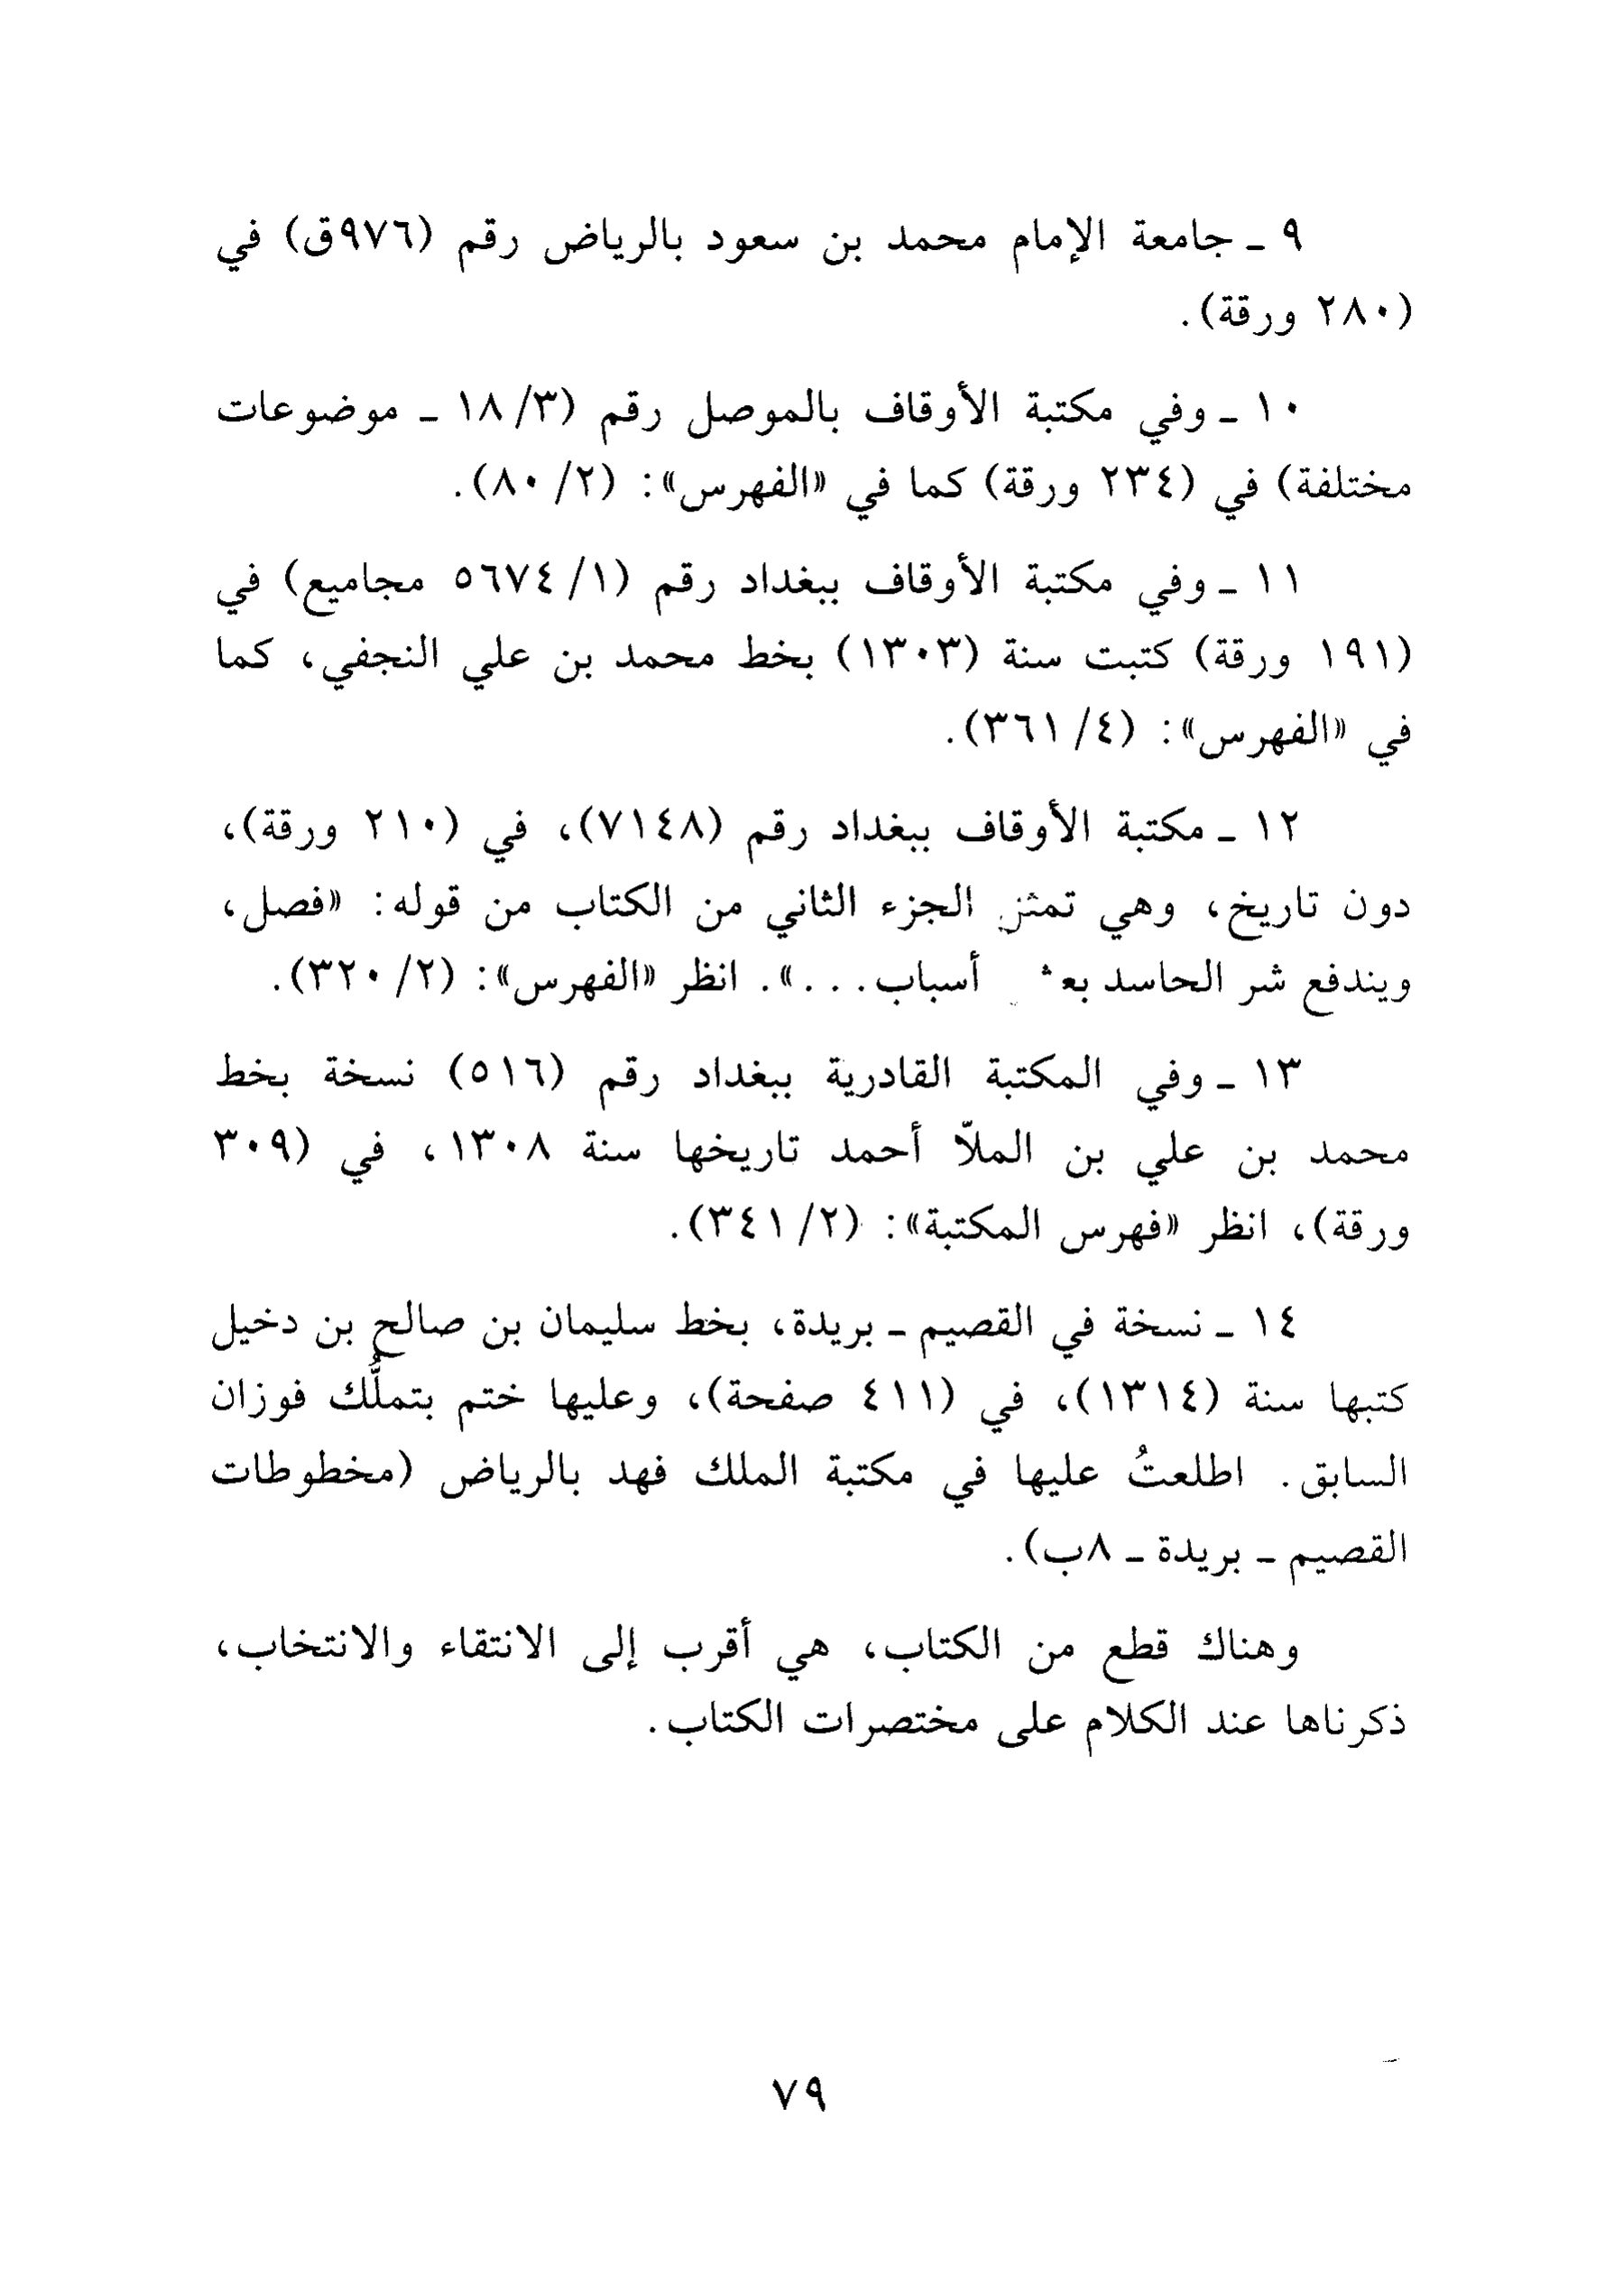 ٩ ـ جامعة الإمام محمد بن سعود بالرياض رقم (٩٧٦ق) في
(٢٨٠ ورقة).
١٠ ـ وفي مكتبة الأوقاف بالموصل رقم (١٨/٣ ـ موضوعات
مختلفة) في (٢٣٤ ورقة) كما في «الفهرس»: (٨٠/٢).
١١ ـ وفي مكتبة الأوقاف ببغداد رقم (٥٦٧٤/١ مجاميع) في
(١٩١ ورقة) كتبت سنة (١٣٠٣) بخط محمد بن علي النجفي، كما
في «الفهرس»: (٣٦١/٤).
١٢ ـ مكتبة الأوقاف ببغداد رقم (٧١٤٨)، في (٢١٠ ورقة)،
دون تاريخ، وهي الجزء الثاني من الكتاب من قوله: «فصل،
ويندفع شر الحاسد أسباب...». انظر «الفهرس»: (٣٢٠/٢).
١٣ ـ وفي المكتبة القادرية ببغداد رقم (٥١٦) نسخة بخط
محمد بن علي بن الملاّ أحمد تاريخها سنة ١٣٠٨، في (٣٠٩
ورقة)، انظر «فهرس المكتبة»: (٣٤١/٢).
١٤ ـ نسخة في القصيم ـ بريدة، بخط سليمان بن صالح بن دخيل
كتبها سنة (١٣١٤)، في (٤١١ صفحة)، وعليها ختم بتملُّك فوزان
السابق. اطلعتُ عليها في مكتبة الملك فهد بالرياض (مخطوطات
القصيم ـ بريدة ـ ٨ب).
وهناك قطع من الكتاب، هي أقرب إلى الانتقاء والانتخاب،
ذكرناها عند الكلام على مختصرات الكتاب.
٧٩